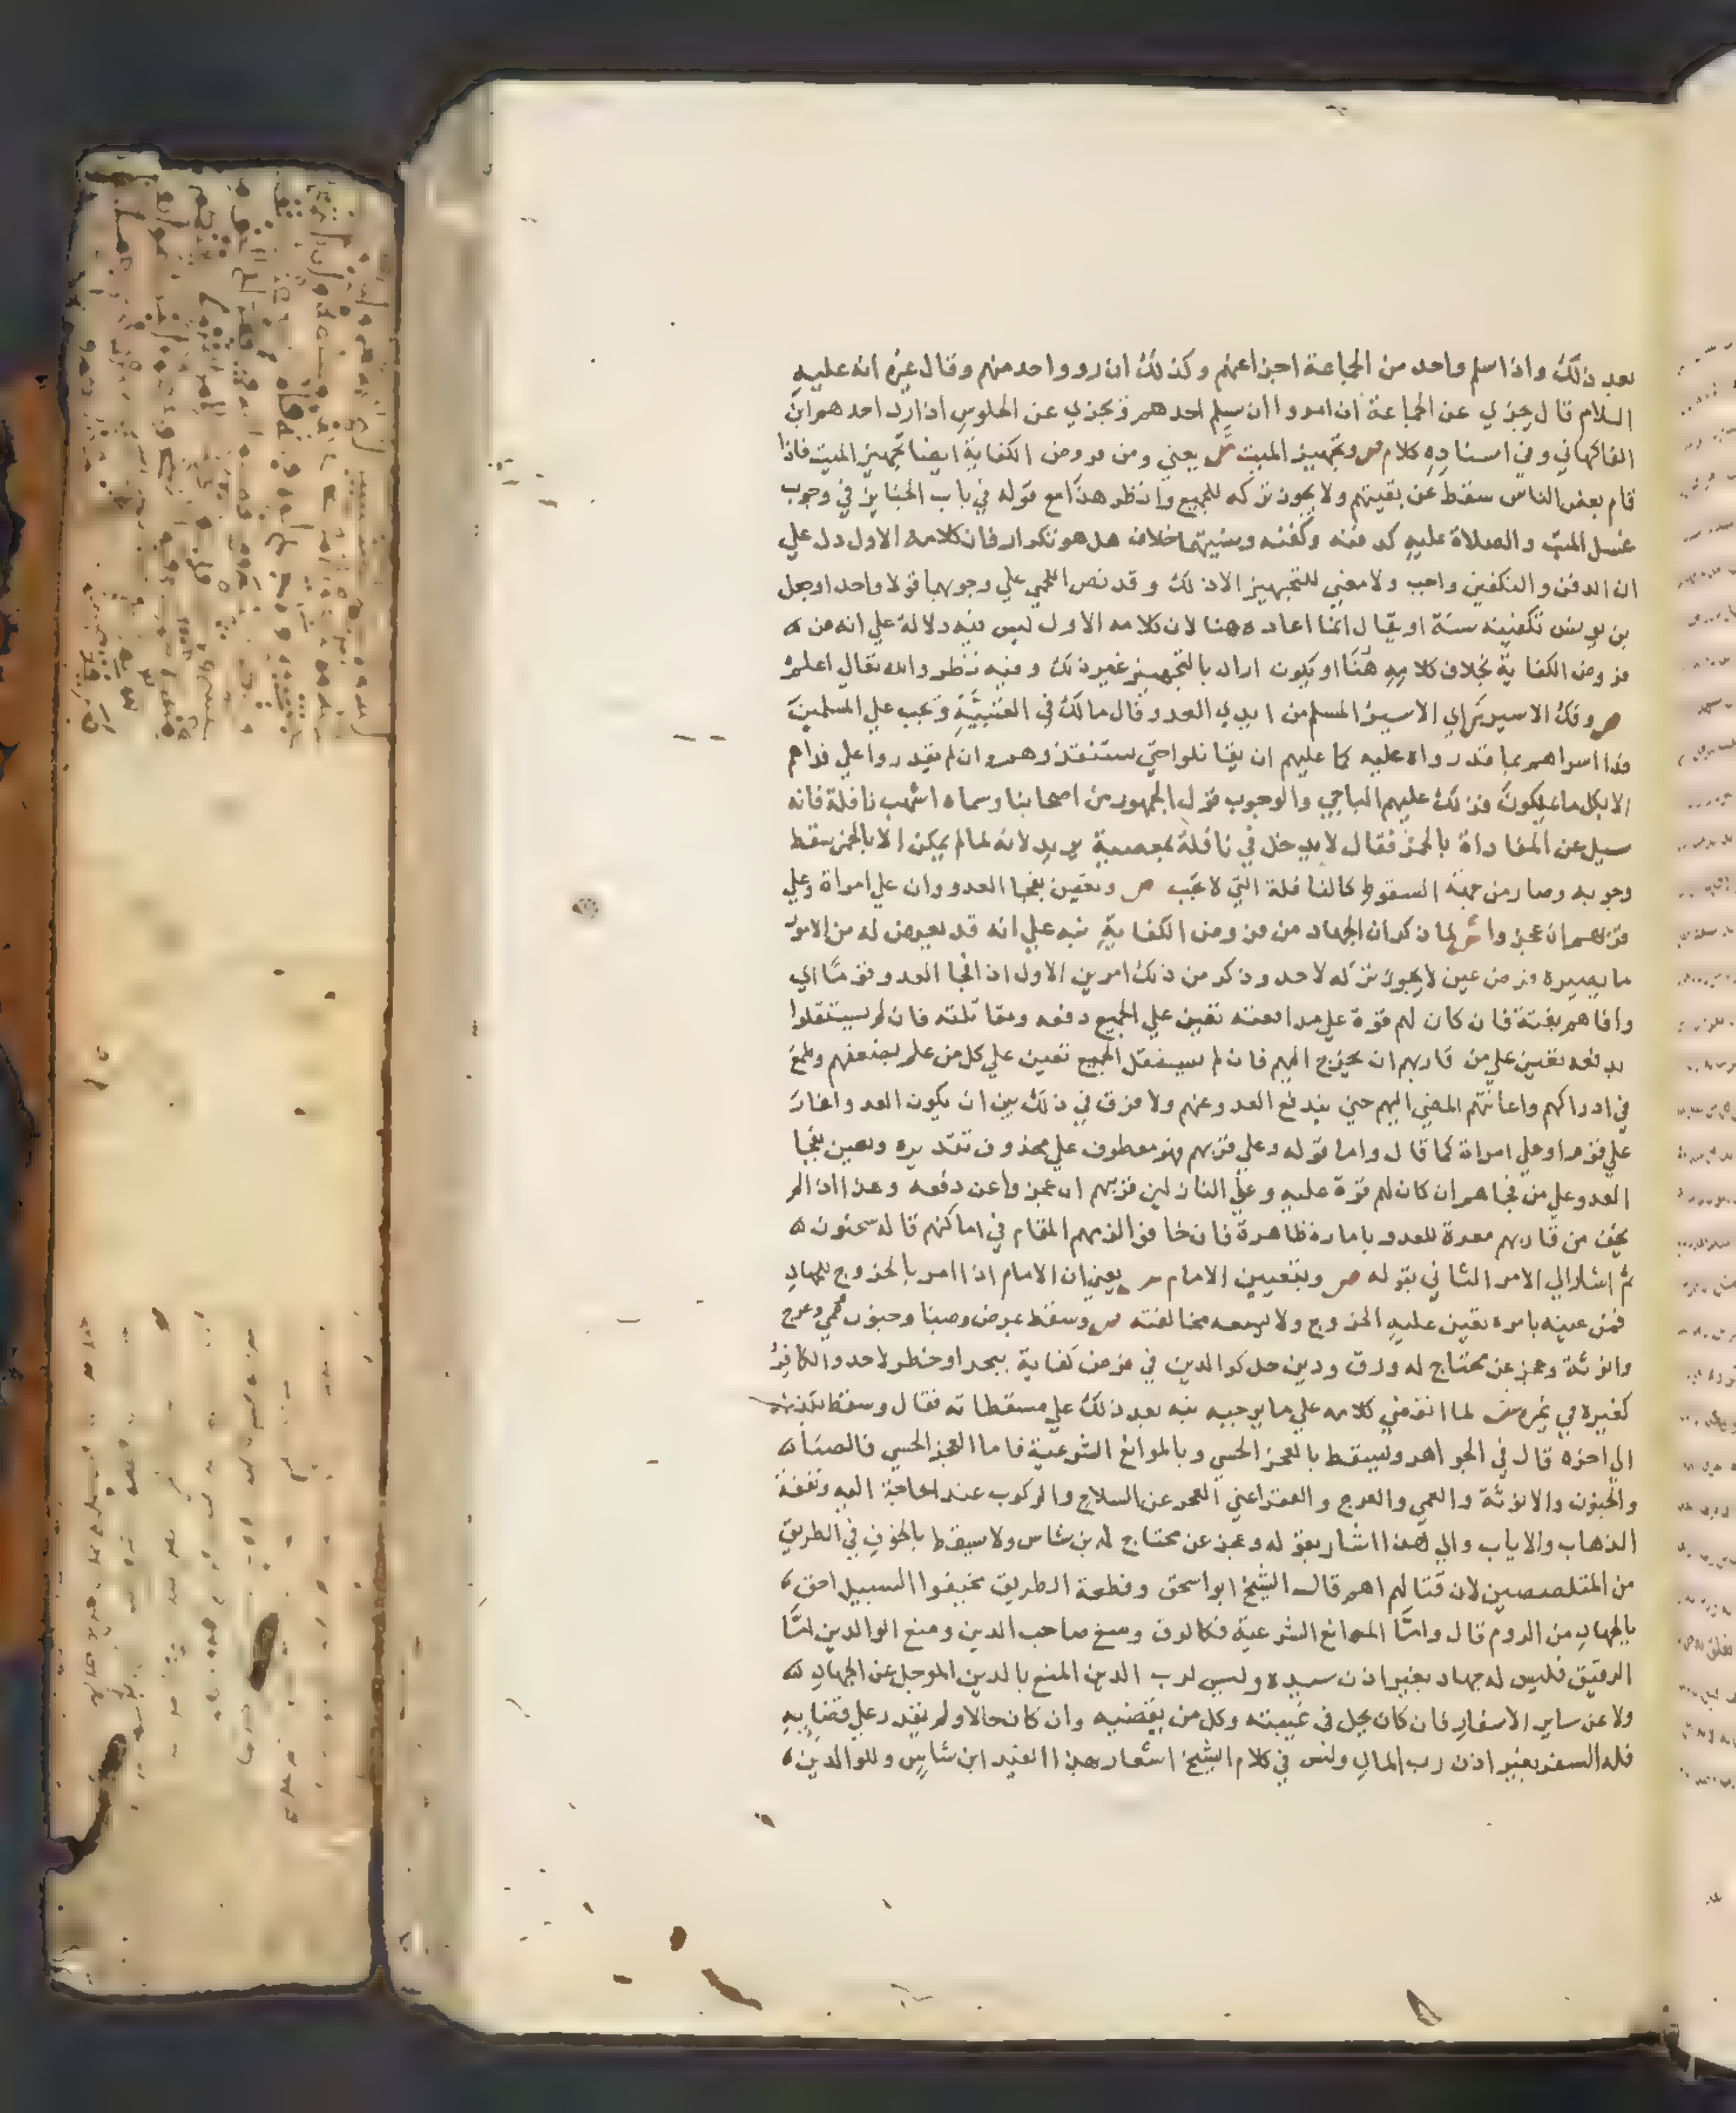 بعد ذلك واذا سلم واحد من الجماعة اجزا عنهم وكذلك ان رد واحد منهم وقال غيره انه عليه
السلام قال يجزي عن الجماعة اذا مروا ان يسلم احدهم ويجزي عن الجلوس اذا رد احدهم ابن
الفاكهاني وفي اسناده كلام ص وتجهيز الميت ش يعني ومن فروض الكفاية ايضا تجهيز الميت فاذا
قام بعض الناس سقط عن بقيتهم ولا يجوز تركه للجميع وانظر هذا مع قوله في باب الجنايز في وجوب
غسل الميت والصلاة عليه كدفنه وكفنه وسنيتهما خلاف هل هو تكرار فان كلامه الاول دل علي
ان الدفن والتكفين واجب ولا معني للتجهيز الا ذلك وقد نص اللخمي علي وجوبهما قولا واحدا وجعل
بن يونس تكفينه سنة او يقال انما اعاده هنا لان كلامه الاول ليس فيه دلالة علي انه من
فروض الكفاية بخلاف كلامه هنا او يكون اراد بالتجهيز غير ذلك وفيه نظر والله تعالي اعلم
ص وفك الاسير ش اي الاسير المسلم من ايدي العدو وقال مالك في العتبية ويجب علي المسلمين
فدا اسراهم بما قدروا عليه كما عليهم ان يقاتلوا حتي يستنقذوهم وان لم يقدروا علي فداهم
الا بكل ما يملكون فذلك عليهم الباجي والوجوب قول الجمهور من اصحابنا وسماه اشهب نافلة فانه
سيل عن المفاداة بالخمر فقال لا يدخل في نافلة بمعصية يريد لانه لما لم يمكن الا بالخمر سقط
وجوبه وصار من جهة السقوط كالنافلة التي لا تجب ص وتعين بفجا العدو وان علي امراة وعلي
قربهم ان عجزوا ش لما ذكر ان الجهاد من فروض الكفاية نبه علي انه قد يعرض له من الامور
ما يصيره فرض عين لا يجوز تركه لاحد وذكر من ذلك امرين الاول اذا فجا العدو قوما اي
وافاهم بغتة فان كان لهم قوة علي مدافعته تعين علي الجميع دفعه ومقاتلته فان لم يستقلوا
بدفعه تعين علي من قاربهم ان يخرج اليهم فان لم يستقل الجميع تعين علي كل من علم بضعفهم وطمع
في ادراكهم واعانتهم المضي اليهم حتي يندفع العدو عنهم ولا فرق في ذلك بين ان يكون العدو اغار
علي قوم او علي امراة كما قال واما قوله وعلي قربهم فهو معطوف علي محذوف تقديره وتعين بفجا
العدو علي من فجاهم ان كان لهم قوة عليه وعلي النازلين قربهم ان عجزوا عن دفعه وهذا اذا لم
يخف من قاربهم معرة للعدو بامارة ظاهرة فان خافوا الزمهم المقام في اماكنهم قاله سحنون
ثم اشار الي الامر الثاني بقوله ص وبتعيين الامام ش يعني ان الامام اذا امر بالخروج للجهاد
فمن عينه بامره تعين عليه الخروج ولا يسعه مخالفته ص وسقط بمرض وصبا وجنون وعمي وعرج
وانوثة وعجز عن محتاج له ورق ودين حل كوالدين في فرض كفاية ببحر او خطر لا جد والكافر
كغيره في غيره ش لما انقضي كلامه علي ما يوجبه نبه بعد ذلك علي مسقطاته فقال وسقط بكذا
الي اخره قال في الجواهر ويسقط بالعجز الحسي وبالموانع الشرعية فاما العجز الحسي فالصبا
والجنون والانوثة والعمي والعرج والفقر اعني العجز عن السلاح والركوب عند الحاجة اليه ونفقة
الذهاب والاياب والي هذا اشار بقوله وعجز عن محتاج له بن شاس ولا يسقط بالخوف في الطريق
من المتلصصين لان قتالهم اهم قال الشيخ ابو اسحق وقطعة الطريق مخيفوا السبيل احق
بالجهاد من الروم قال واما الموانع الشرعية فكالرق ومنع صاحب الدين ومنع الوالدين اما
الرقيق فليس له جهاد بغير اذن سيده وليس لرب الدين المنع بالدين الموجل عن الجهاد
ولا عن ساير الاسفار فان كان يحل في غيبته وكل من يقضيه وان كان حالا ولم يقدر علي قضايه
فله السفر بغير اذن رب المال وليس في كلام الشيخ اشعار بهذا القيد ابن شاس وللوالدين